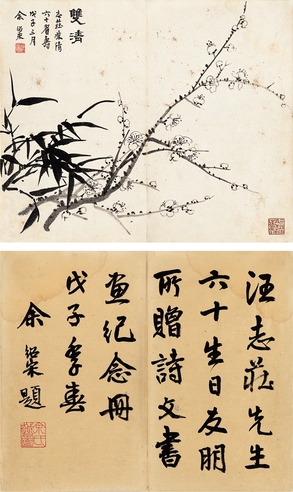 雙清
志莊廣清
六十眉壽
戊子三月
余紹宋
汪志莊先生
六十生日友朋
所贈詩文書
畫紀念冊
戊子季春
余紹宋題